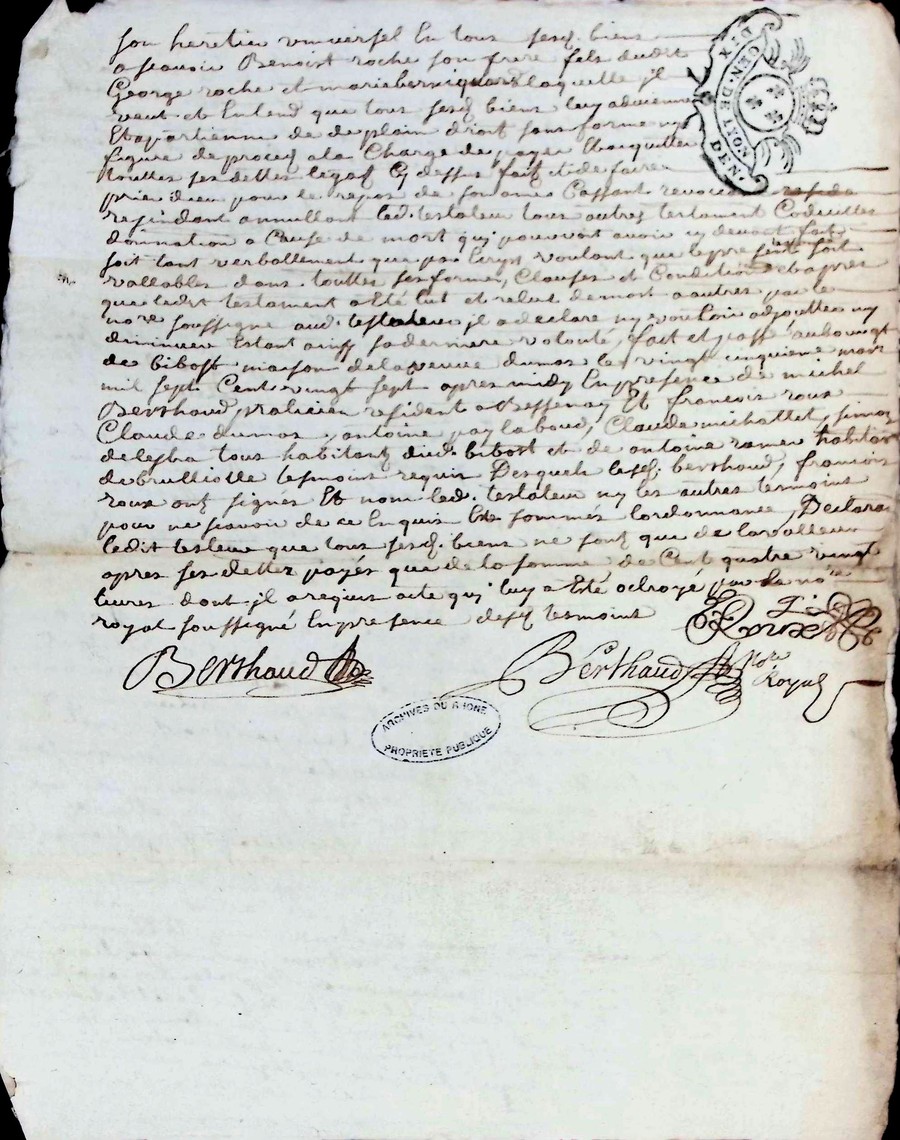 son heretier vniversel En tous sesd. biens
a scavoir Benoist roche son frere fils dudit
George roche et marie bernicquard laquelle jl
veut et Entend que tous sesd biens luy advienne
Et apartienne de de plain droit sans forme ny
figure de proces a la Charge de payer Et acquitter
touttes ses dettes legas Cy dessus fait et de faire
prie dieu pour le repos de son ame Cassant revocant
resindant annullant led. testateur tous autres testament Codicilles
donnation a Cause de mort qui pouvoit avoir cy devant fait
soit tant verballement que par Escrit voulant que le present soit
vallables dans touttes ses formes, Clauses et Condition et apres
que ledit testament a Esté lut et relut de mot a autres par le
nore soussigné aud. testateur jl a declaré ny vouloir adjoutter ny
diminuer Estant ainsy sa derniere volonté, fait et passé au bourgt
de bibost maison de la veuve dumas le vingt cinquieme mars
mil sept Cent vingt sept apres midy En presence de michel
Berthaud praticien resident a Bessenay Et francois roux
Claude dumas, antoine pay la boud, Claude michallet, simon
de lestra tous habitant dud. bibost et de antoine ramen habitan
de brulliolle tesmoins requis Desquels lesd. berthaud, francois
roux ont signés Et nom led. testateur ny les autres tesmoins
pour ne scavoir de ce Enquis Et sommés lordonnance, Declaran
ledit testateur que tous sesd. biens ne sont que de la valleur
apres ses dettes payés que de la somme de Cent quatre vingt
livres dont jl a requis acte qui luy a Esté octroyé par le nore
royal soussigné En presence desd. tesmoins
F. Roux
Berthaud
Berthaud Nore Royal
DIX
GEN. DE LYON
DEN.
ARCHIVES DU RHONE
PROPRIETE PUBLIQUE